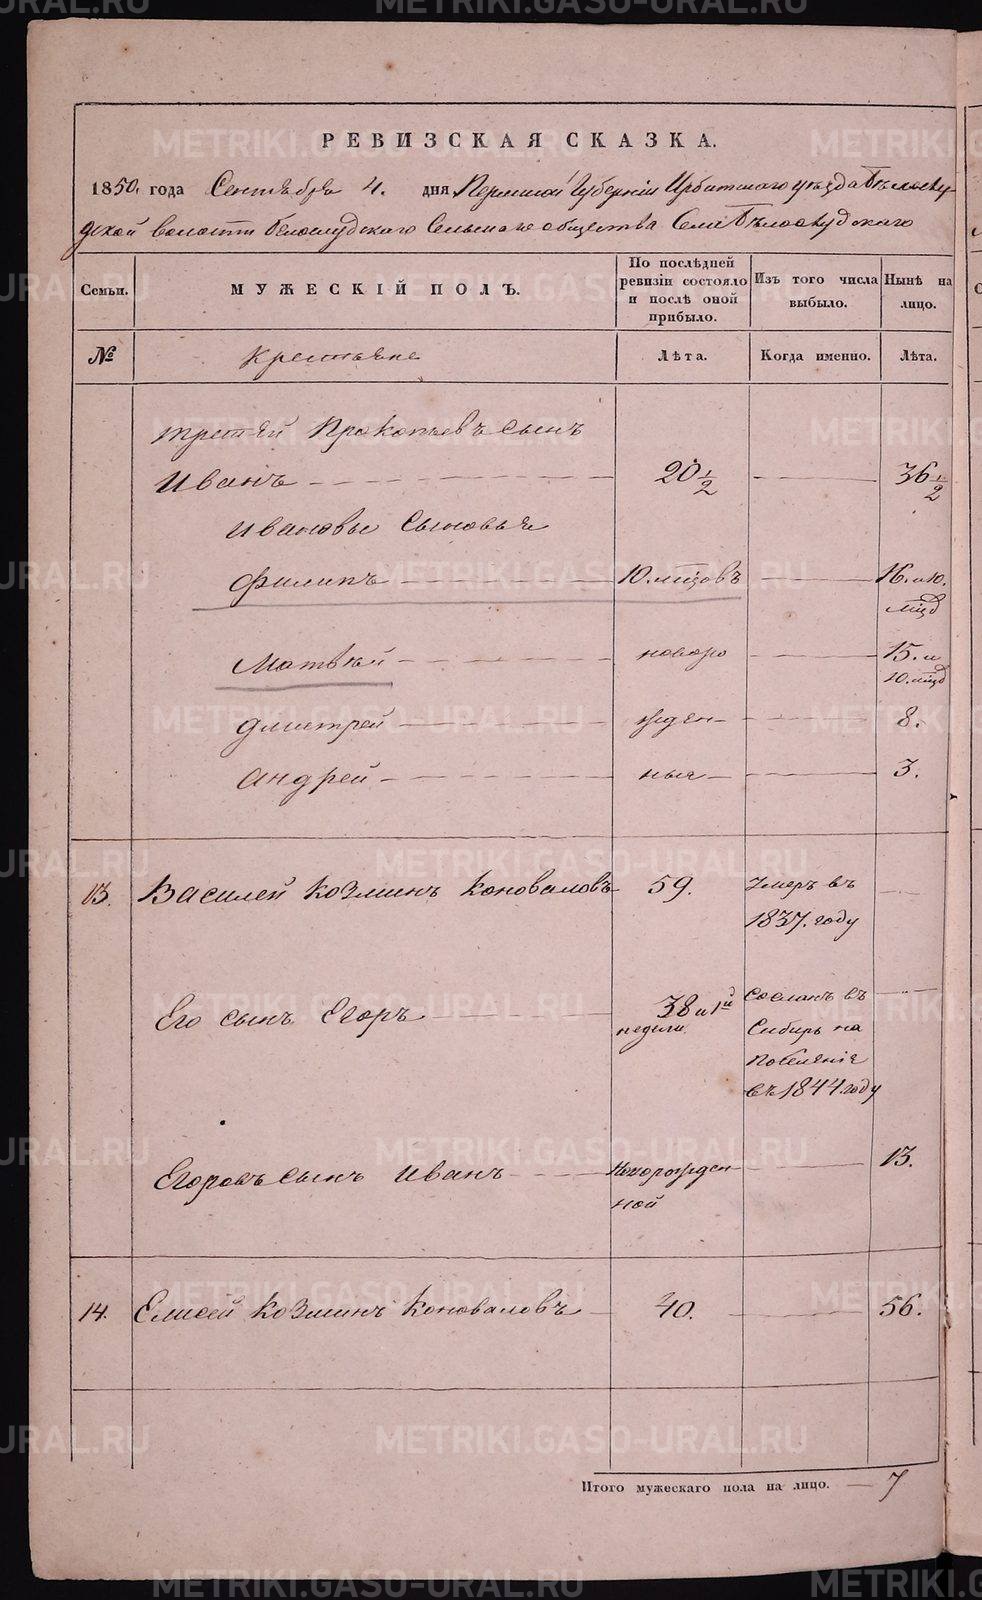 РЕВИЗСКАЯ СКАЗКА.
1850. года Сентября 4. дня Пермской Губерніи Ирбитскаго уѣзда Бѣлослу-
дской волости Белослудскаго Сельскаго общества Села Бѣлослудскаго
Семьи. МУЖЕСКІЙ ПОЛЪ. По послѣдней ревизіи состояло и послѣ оной прибыло. Изъ того числа выбыло. Нынѣ на лицо.
№ Крестьяне Лѣта. Когда именно. Лѣта.
третей Прокопьевъ сынъ
Иванъ 20 1/2 36 1/2
Ивановы Сыновья
Филипъ 10. мцовъ 16. и 10. мцд
Матвѣй новоро 15. и 10. мцд
Дмитрей жден- 8.
Андрей ныя 3.
13. Василей Козминъ Коноваловъ 59. Умеръ въ
1837. году
Его сынъ Егоръ 38 и 1й недели Сосланъ въ
Сибирь на
Поселеніе
въ 1844. году
Егоровъ сынъ Иванъ Новорожден 13.
ной
14. Елисей Козминъ Коноваловъ 40. 56.
Итого мужескаго пола на лицо. — 7
METRIKI.GASO-URAL.RU